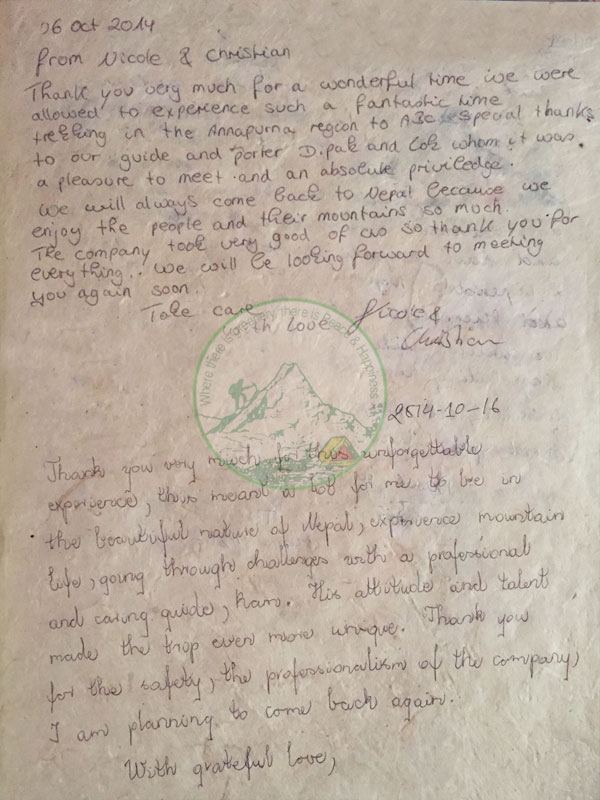 26 Oct 2014
from Nicole & Christian
Thank you very much for a wonderful time we were
allowed to experience such a fantastic time
trekking in the Annapurna region to ABC. Special thanks
to our guide and porter Dipak and whom it was
a pleasure to meet and an absolute priviledge.
We will always come back to Nepal because we
enjoy the people and their mountains so much.
The company took very good of us so thank you for
everything.. we will be looking forward to meeting
you again soon.
Take care
with love Nicole &
Christian
Where there is greenery there is Peace & Happiness
2014-10-16
Thank you very much for this unforgettable
experience, this meant a lot for me to be in
the beautiful nature of Nepal, experience mountain
life, going through challenges with a professional
and caring guide, Ram. His attitude and talent
made the trip even more unique. Thank you
for the safety, the professionalism of the company,
I am planning to come back again.
With grateful love,